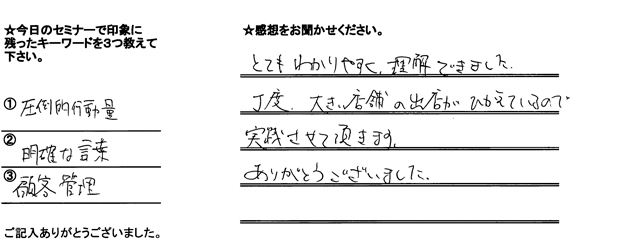 ☆今日のセミナーで印象に
残ったキーワードを3つ教えて
下さい。
① 圧倒的行動量
② 明確な言葉
③ 顧客管理
ご記入ありがとうございました。
☆感想をお聞かせください。
とてもわかりやすく、理解できました。
丁度、大きい店舗の出店がひかえているので
実践させて頂きます。
ありがとうございました。